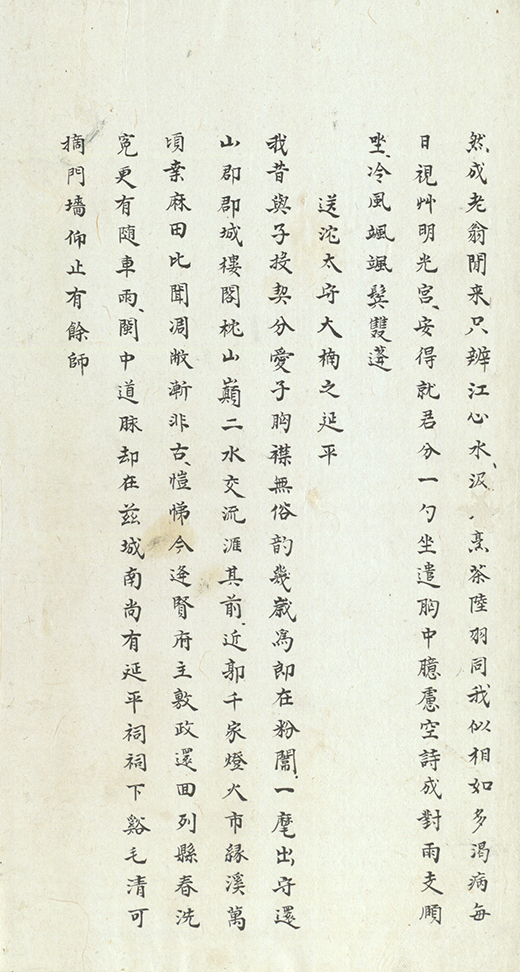 然成老翁閒来只辨江心水汲、烹茶陸羽同我似相如多渴病每
日視艸明光宮安得就君分一勺坐遣胸中臆慮空詩成對雨支頤
坐、冷風颯颯鬓雙蓬
送沱太守大楠之延平
我昔與子投契分愛子胸襟無俗韵幾歲為郎在粉闈一麾出守還
山郡郡城樓閣枕山巔二水交流涯其前近郭千家燈火市緣溪萬
頃桒麻田比聞凋敝漸非古愷悌今逢賢府主敷政還回列縣春洗
冤更有随車雨閩中道脉却在兹城南尚有延平祠祠下谿毛清可
摘門墻仰止有餘師